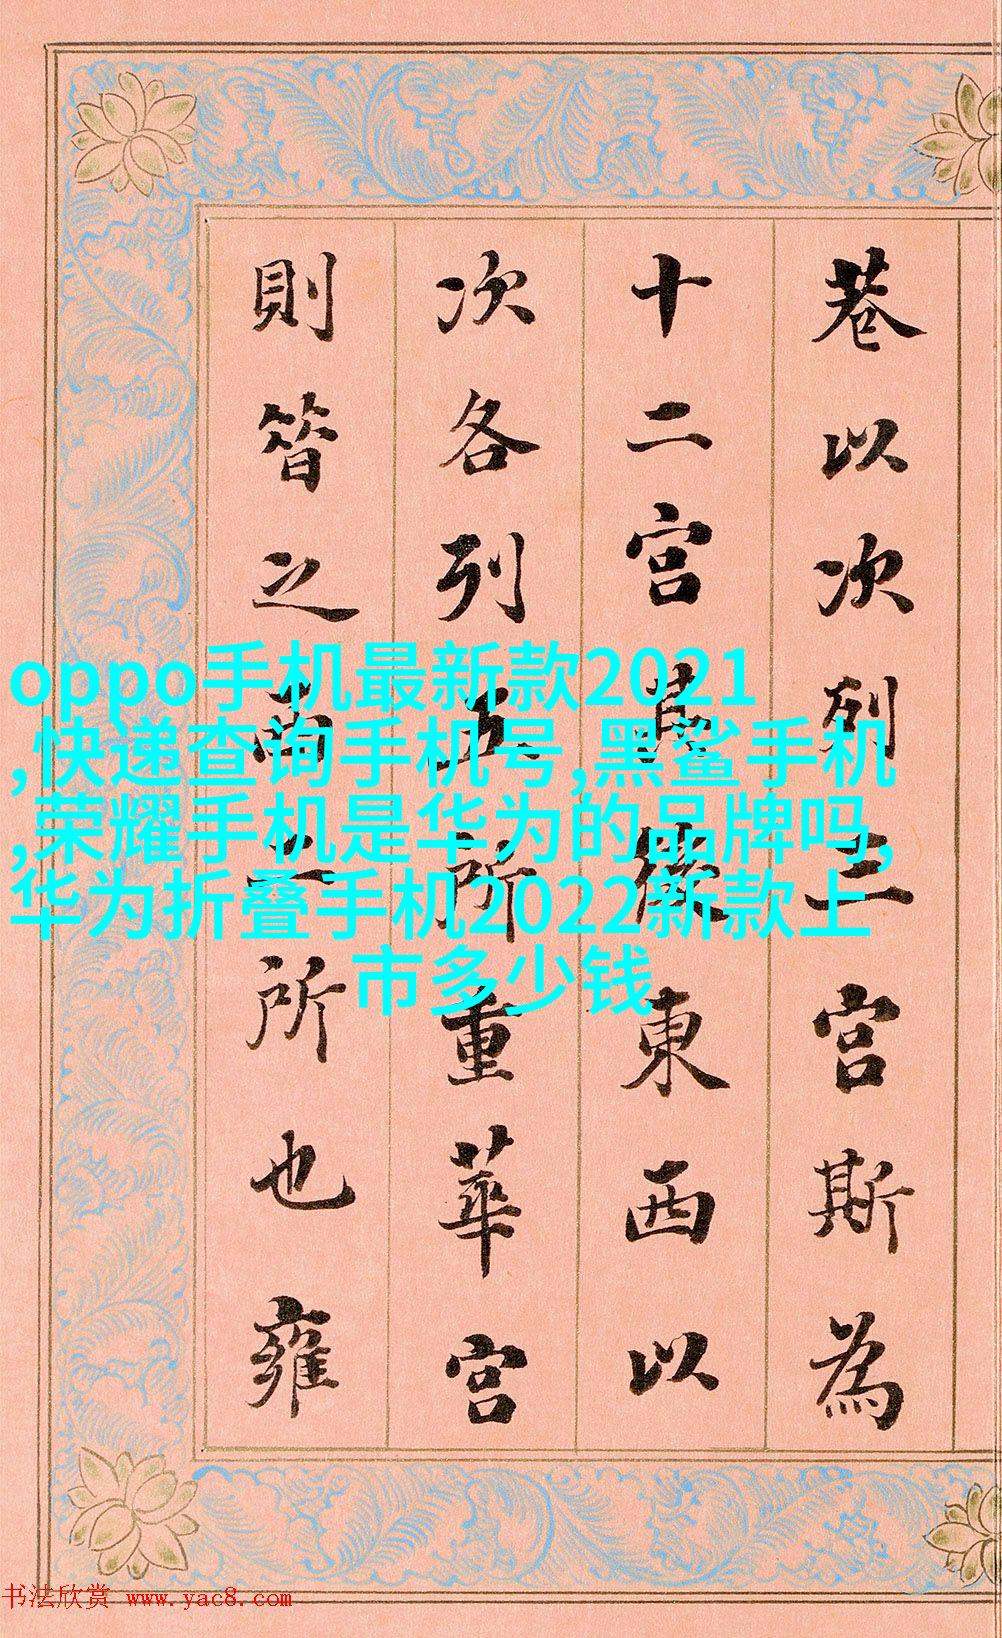 巷以次列三宮斯為
十二宮其後東西以
次各列五所重華宮
則昔之西二所也雍
oppo手机最新款2021
,快递查询手机号,黑鲨手机
,荣耀手机是华为的品牌吗,
华为折叠手机2022新款上
市多少钱
书法欣赏 www.yac8.com